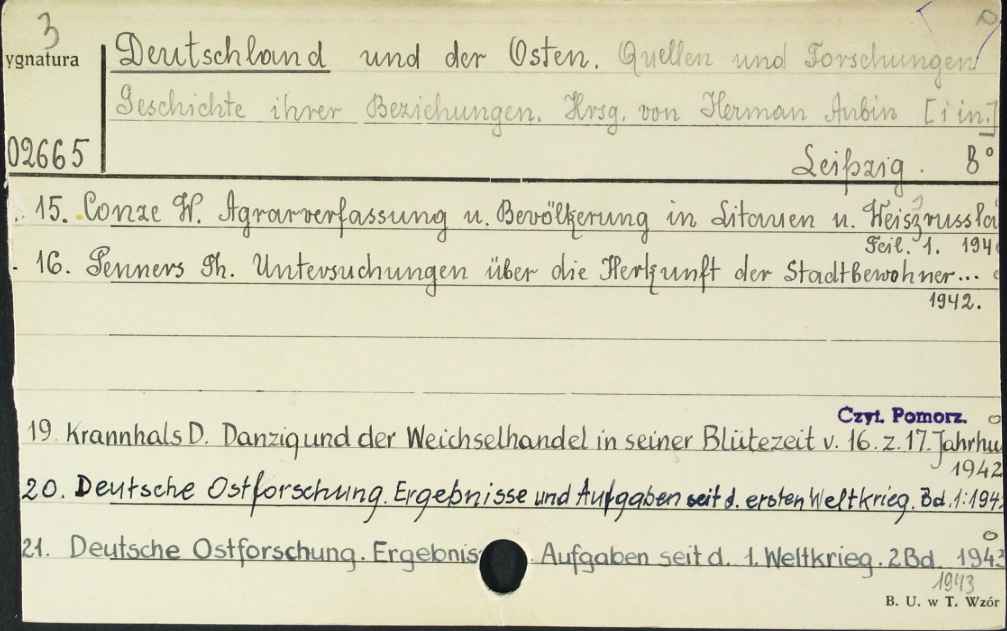 3
ygnatura
Deutschland und der Osten. Quellen und Forschungen
Geschichte ihrer Beziehungen. Hrsg. von Herman Aubin [i in.]
02665
Leipzig. 8°
15. Conze W. Agrarverfassung u. Bevölkerung in Litauen u. Weiszrussla
Teil. 1. 194
16. Penners Th. Untersuchungen über die Herkunft der Stadtbewohner...
1942.
Czyt. Pomorz.
19. Krannhals D. Danzig und der Weichselhandel in seiner Blütezeit v. 16. z. 17. Jahrhu
1942
20. Deutsche Ostforschung. Ergebnisse und Aufgaben seit d. ersten Weltkrieg. Bd. 1: 194
21. Deutsche Ostforschung. Ergebnis Aufgaben seit d. 1. Weltkrieg. 2 Bd. 1943
1943
B. U. w T. Wzór